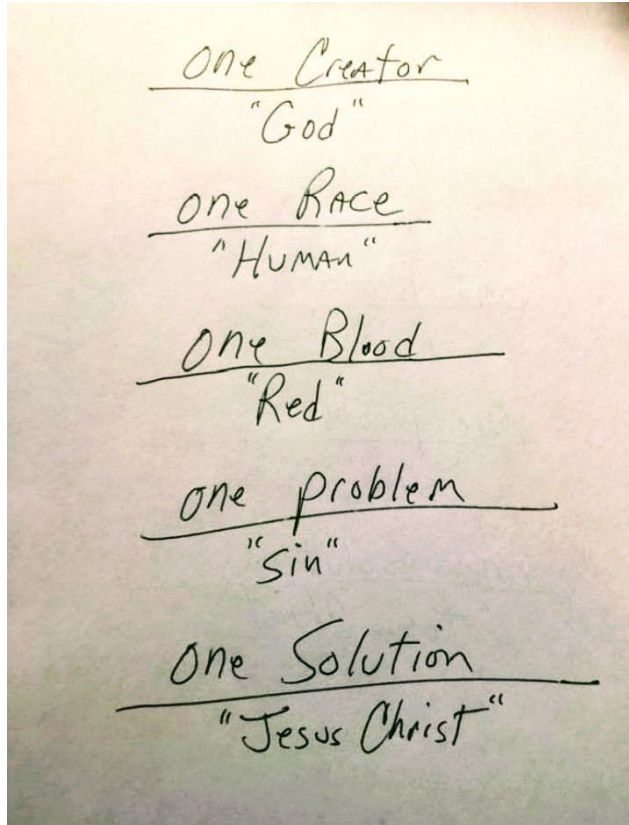 One Creator
"God"
One Race
"Human"
One Blood
"Red"
One problem
"Sin"
One Solution
"Jesus Christ"